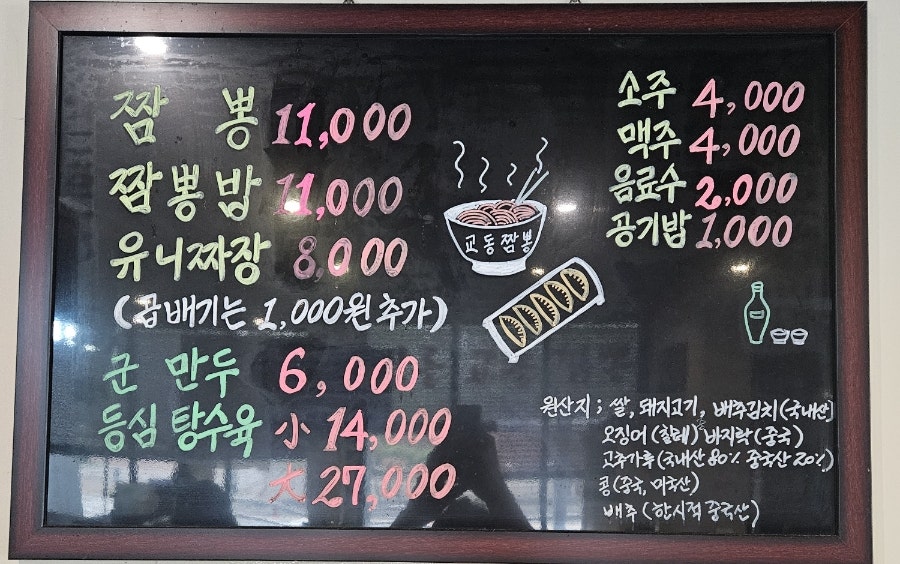 짬 뽕 11,000
짬뽕밥 11,000
유니짜장 8,000
(곱배기는 1,000원 추가)
군 만두 6,000
등심 탕수육 小 14,000
大 27,000
교동짬뽕
소주 4,000
맥주 4,000
음료수 2,000
공기밥 1,000
원산지 ; 쌀, 돼지고기, 배추김치(국내산)
오징어(칠레) 바지락(중국)
고추가루(국내산 80% 중국산 20%)
콩(중국, 미국산)
배추(한시적 중국산)